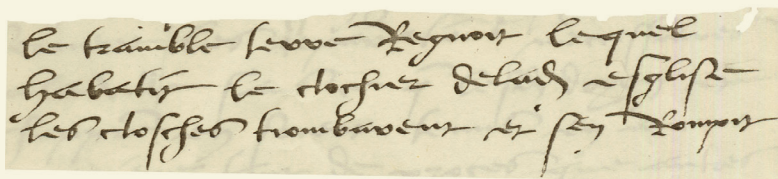 le tramble terre Regnoit lequel
habatit le clochier delad esglise
les closches tombarent et sen Rompit